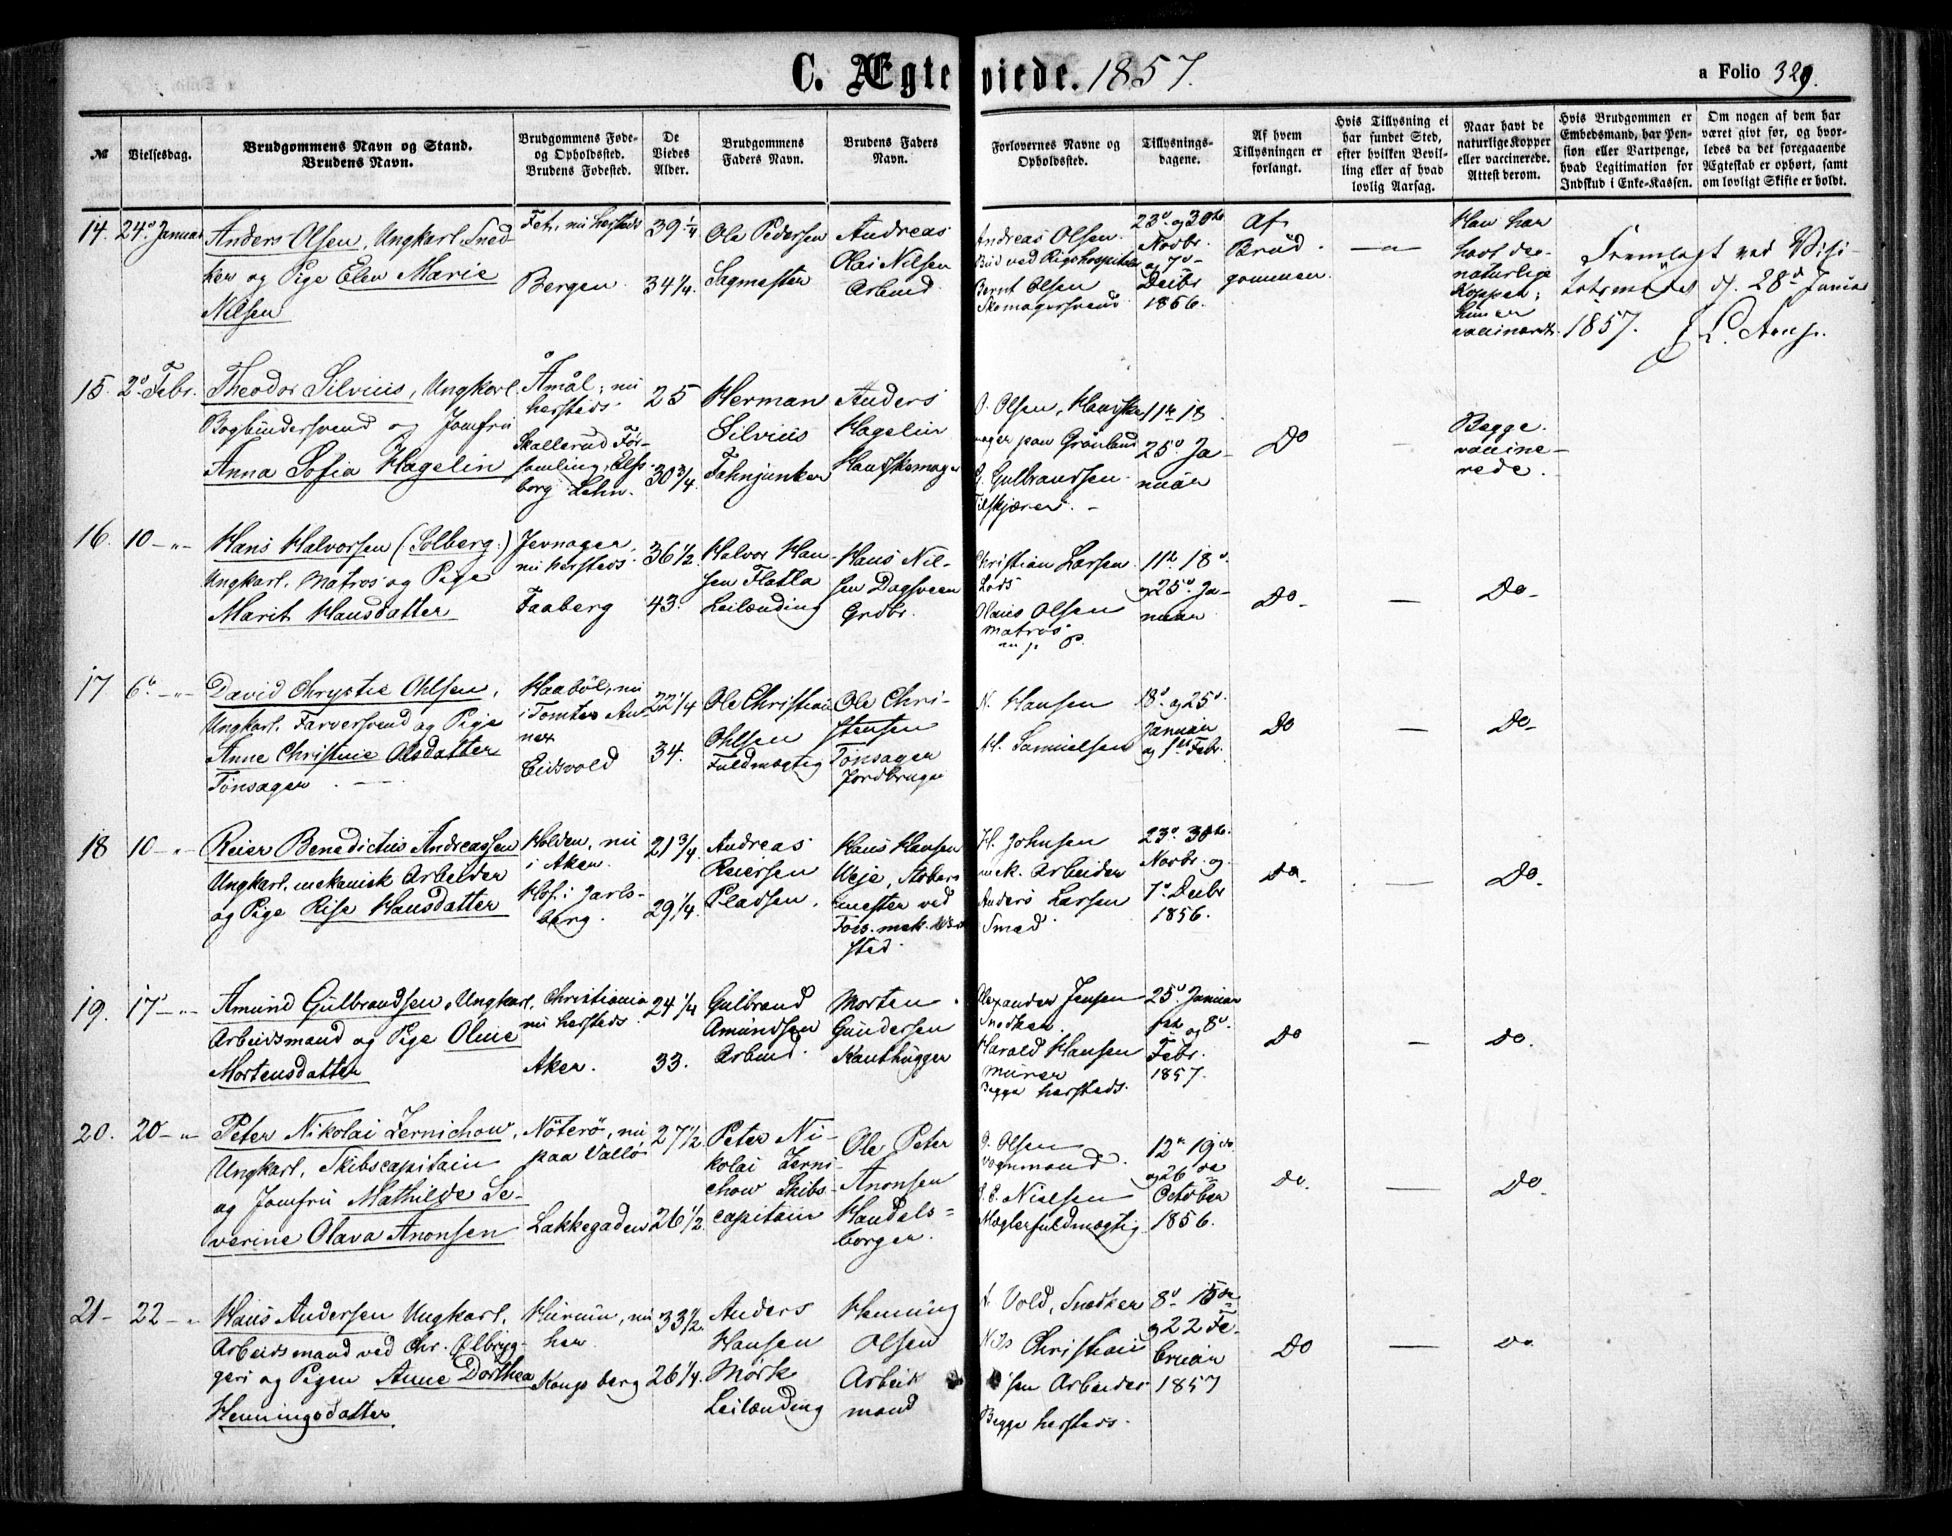 C. Ægteviede. 1857.
a Folio 329.
№
Vielsesdag.
Brudgommens Navn og Stand.
Brudens Navn.
Brudgommens Føde-
og Opholdssted.
Brudens Fødested.
De
Viedes
Alder.
Brudgommens
Faders Navn.
Brudens Faders
Navn.
Forlovernes Navne og
Opholdssted.
Tillysnings-
dagene.
Af hvem
Tillysningen er
forlangt.
Hvis Tillysning ei
har fundet Sted,
efter hvilken Bevil-
ling eller af hvad
lovlig Aarsag.
Naar havt de
naturlige Kopper
eller vaccinerede.
Attest derom.
Hvis Brudgommen er
Embedsmand, har Pen-
sion eller Vartpenge,
hvad Legitimation for
Indskud i Enke-Kassen.
Om nogen af dem har
været givt før, og hvor-
ledes da det foregaaende
Ægteskab er ophørt, samt
om lovligt Skifte er holdt.
14.
24de Januar
Anders Olsen, Ungkarl, Sned-
ker og Pige Elen Marie
Nilsen
Fet, nu hersteds
Bergen
39 1/4
34 1/4
Ole Pedersen
Sagmester
Andreas
Olai Nilsen
Arbmd.
Andreas Olsen
Bud ved Rigshospitalet
Bernt Olsen
Skomagersvend
23d og 30te
Novbr.
og 7d
Decbr
1856.
Af
Brud-
gommen.
— " —
Han har
havt de
naturlige
Kopper;
hun er
vaccineret.
Fremlagt ved Visi-
tatsmødet d. 28d Januar
1857.
15.
2d Febr.
Theodor Silvius, Ungkarl
Bogbindersvend og Jomfru
Anna Sofia Hagelin
Åmål; nu
hersteds.
Skallerud För-
samling, Elfs-
borg Lehn.
25
30 3/4
Herman
Silvius
Fahnjunker
Anders
Hagelin
Handskemager
O. Olsen, Handske-
mager paa Grönland
G. Gulbrandsen
11te 18
25d Ja-
nuar
Do
—
Begge
vaccine-
rede.
16.
10 — " —
Hans Halvorsen (Solberg:)
Ungkarl, Matros og Pige
Marit Hansdatter
Jevnager,
nu hersteds.
Faaberg
36 1/2
43.
Halvor Han-
sen Flatla
Leilænding
Hans Nil-
sen Dagsveen
Grdbr.
Christian Larsen
Lods
Olaus Olsen
Matros
11te 18d
og 25d Ja-
nuar
Do —
—
Do —
17
6d — " —
David Chrystie Ohlsen,
Ungkarl, Farversvend og Pige
Anne Christine Olsdatter
Tönsager
Haaböl, nu
i Tomter An-
nex
Eidsvold
22 1/4
34.
Ole Christian
Ohlsen
Fuldmægtig
Ole Chri-
stensen
Tonsager
Jordbruger
N. Hansen
H. Samuelsen
18d og 25d
Januar
og 1ste Febr.
Do
—
Do —
18
10 — " —
Reier Benedictus Andreassen
Ungkarl, mekanisk Arbeider
og Pige Rise Hansdatter
Holden, nu
i Aker.
Hof i Jarls-
berg.
21 3/4
29 1/4
Andreas
Reiersen
Pladsen.
Hans Hansen
Støber-
mester ved
H. Johnsen
mek. Arbeider
Anders Larsen
Smed
23d 30te
Novbr. og
7d Decbr
1856.
Do.
—
Do.
19.
17d — " —
Amund Gulbrandsen, Ungkarl,
Arbeidsmand og Pige Oline
Mortensdatter
Christiania
nu hersteds.
Aker.
24 1/4
33.
Gulbrand
Amundsen
Arbmd.
Morten
Gundersen
Kanthugger
Alexander Jensen
Snedker
Harald Hansen
Murer
Begge hersteds.
25d Januar
1ste og 8d
Febr.
1857.
Do
—
Do.
20.
20 — " —
Peter Nikolai Zernichow,
Ungkarl, Skibscapitain
og Jomfru Mathilde Se-
verine Olava Anonsen
Nöterö, nu
paa Vallö
Lakkegaden
27 1/2
26 1/2
Peter Ni-
kolai Zerni-
chow Skibs-
capitain
Ole Peter
Anonsen
Handels-
borger.
Olsen
Vognmand
Nielsen
Mæglerfuldmægtig
12te 19de
og 26de
October
1856.
Do.
—
Do.
21 —
22 — "
Hans Andersen Ungkarl,
Arbeidsmand ved Chr. Ølbryg-
geri og Pigen Anne Dorthea
Henningsdatter
Hurum, nu
her
Kongsberg
33 1/2
26 1/4
Anders
Hansen
Mørk
Leilænding
Henning
Olsen
Arbeids
mand
A. Vold, Snedker
Nils Christian
sen Arbeider
Begge hersteds.
8d 15de
og 22 Fe-
bruar
1857
Do
—
Do